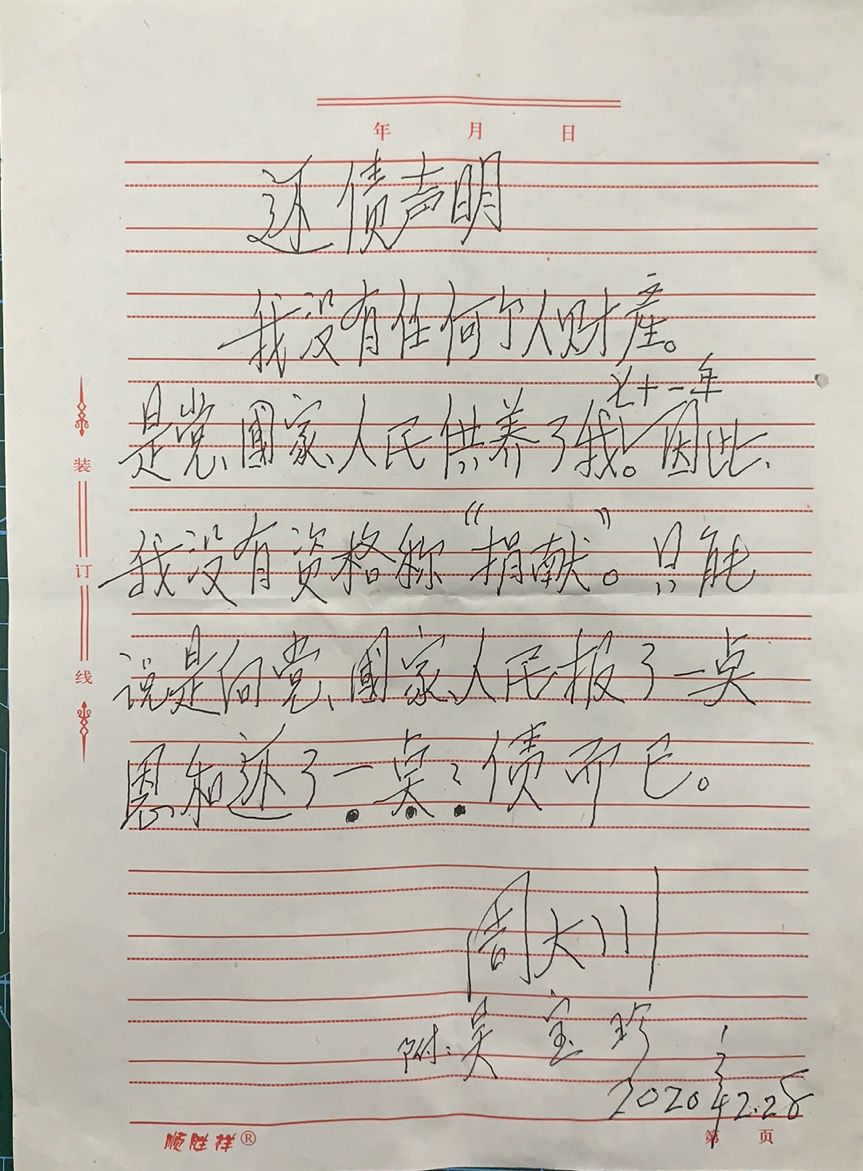 年 月 日
还债声明
我没有任何个人财產。
七十一年
是党、國家、人民供养了我。因此、
我没有资格称“捐献”。只能
说是向党、國家、人民报了一点
恩和还了一点点债而已。
周大川
附:吴宝珍
2020
2.28
装
订
线
顺胜祥®
第 页